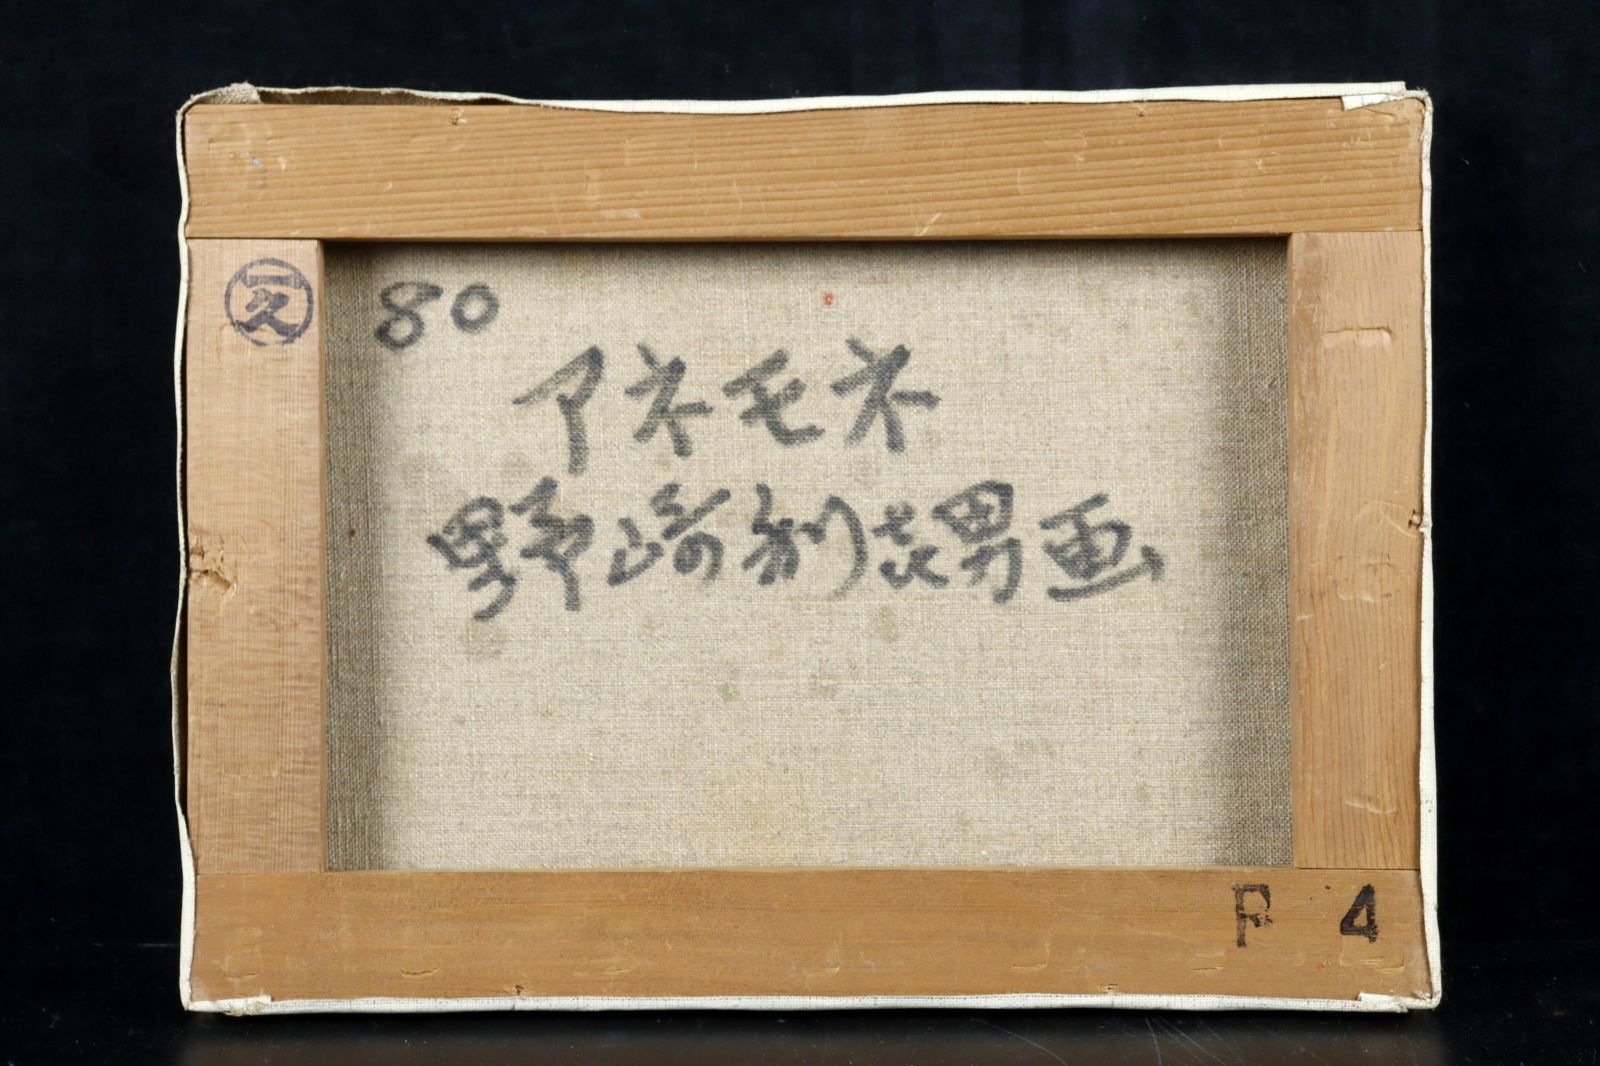 一久
80
アネモネ
野崎利喜男画
F 4